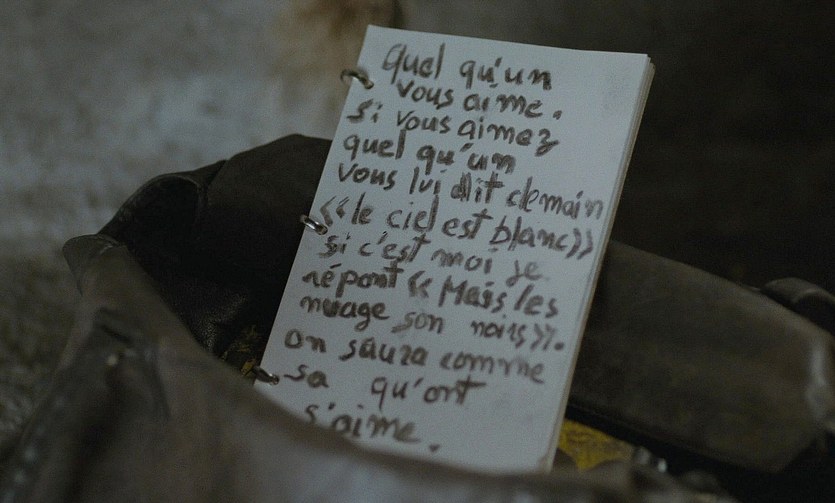 quel qu'un
vous aime.
si vous aimez
quel qu'un
vous lui dit demain
<<le ciel est blanc>>
si c'est moi je
répont << Mais les
nuage son noirs>>.
on saura comme
sa qu'ont
s'aime.